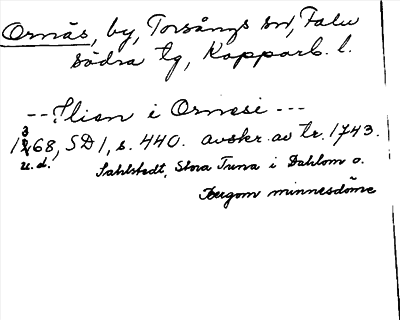 Ornäs, by, Torsångs sn, Falu
södra tg, Kopparb. l.
-- Ilian i Ornesi ---
1368, SD 1, s. 440. avskr. av tr. 1743.
u.d. Sahlstedt, Stora Tuna i Dahlom o.
Bergom minnesdöme